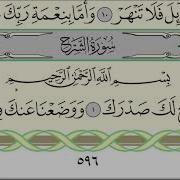 فَلَا تَنْهَرْ ١٠ وَأَمَّا بِنِعْمَةِ رَبِّكَ
سُورَةُ الشَّرْحِ
بِسْمِ اللَّهِ الرَّحْمَٰنِ الرَّحِيمِ
لَكَ صَدْرَكَ ١ وَوَضَعْنَا عَنكَ
٥٩٦